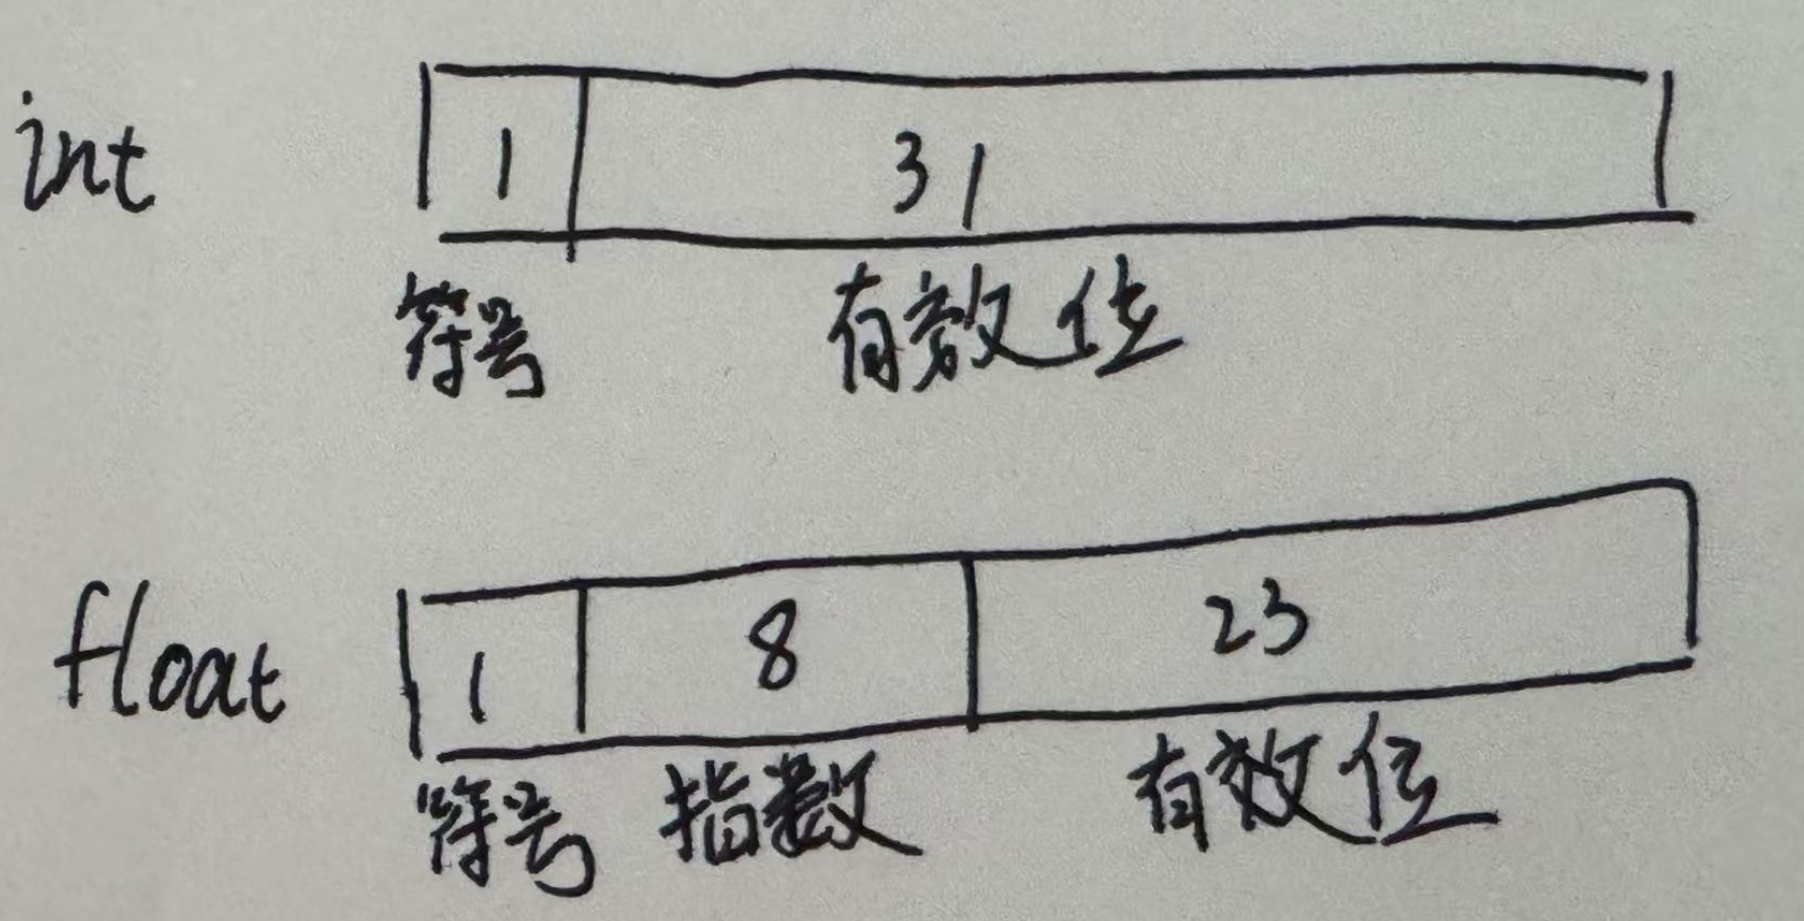 int 1 31
符号 有效位
float 1 8 23
符号 指数 有效位